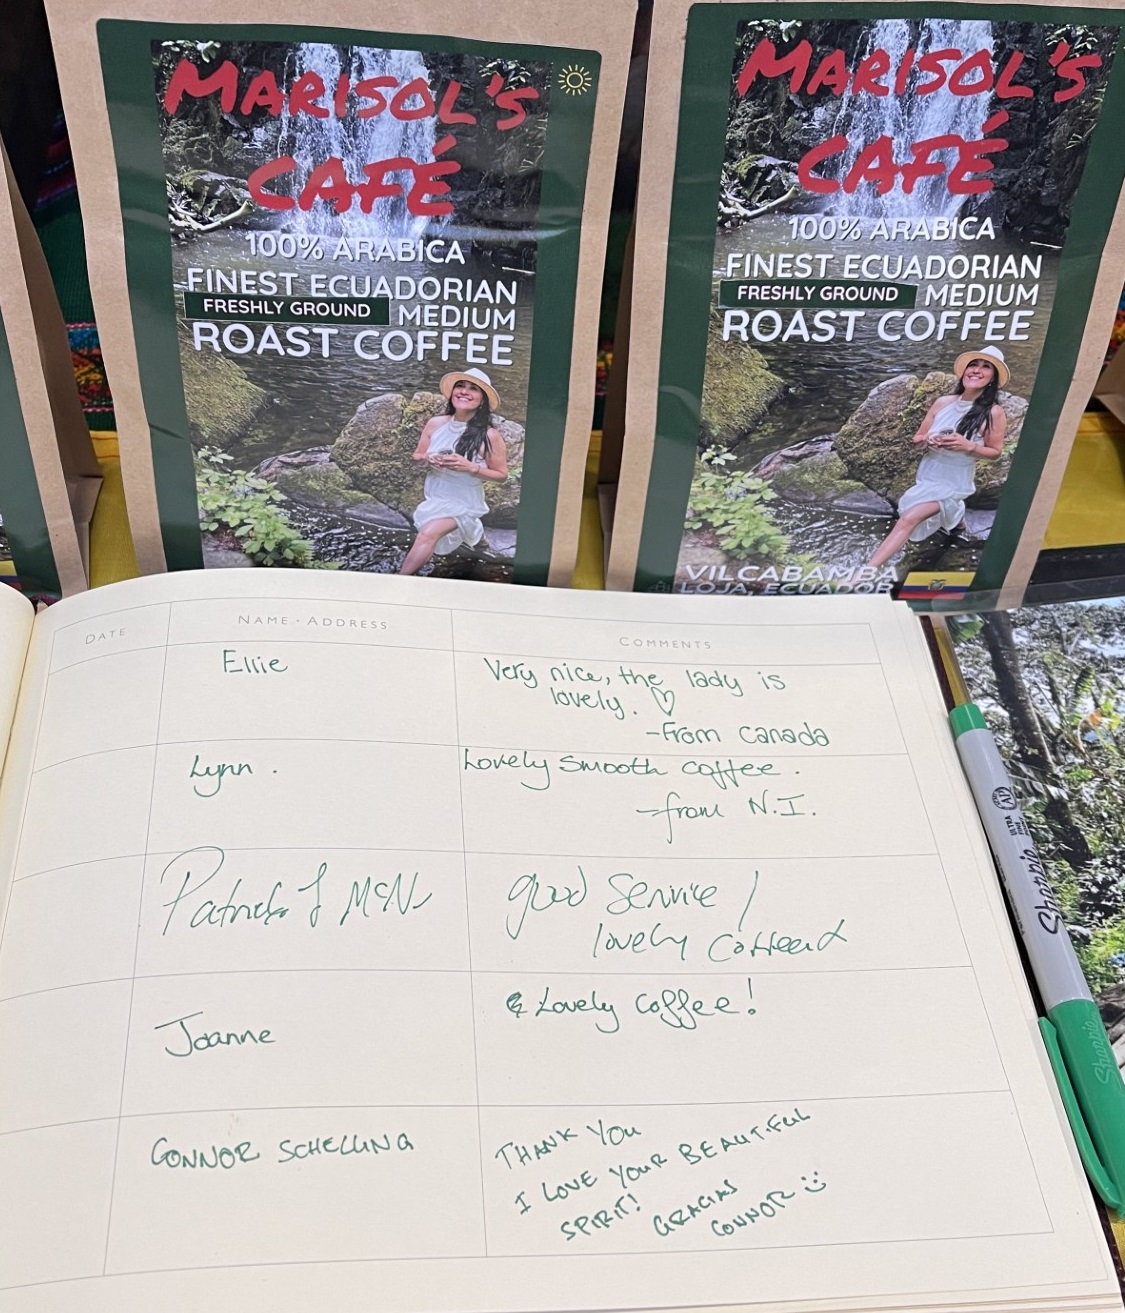 MARISOL'S
CAFÉ
100% ARABICA
FINEST ECUADORIAN
FRESHLY GROUND MEDIUM
ROAST COFFEE
MARISOL'S
CAFÉ
100% ARABICA
FINEST ECUADORIAN
FRESHLY GROUND MEDIUM
ROAST COFFEE
VILCABAMBA
LOJA, ECUADOR
DATE NAME · ADDRESS COMMENTS
Ellie
Very nice, the lady is
lovely. ♡
-From Canada
Lynn.
Lovely smooth coffee.
-from N.I.
Patrick
good Service /
lovely
Joanne
& Lovely coffee!
CONNOR SCHELLING
THANK YOU
I LOVE YOUR BEAUTIFUL
SPIRIT!
GRACIAS
CONNOR :)
Sharpie
ULTRA
FINE
AP
Sharpie